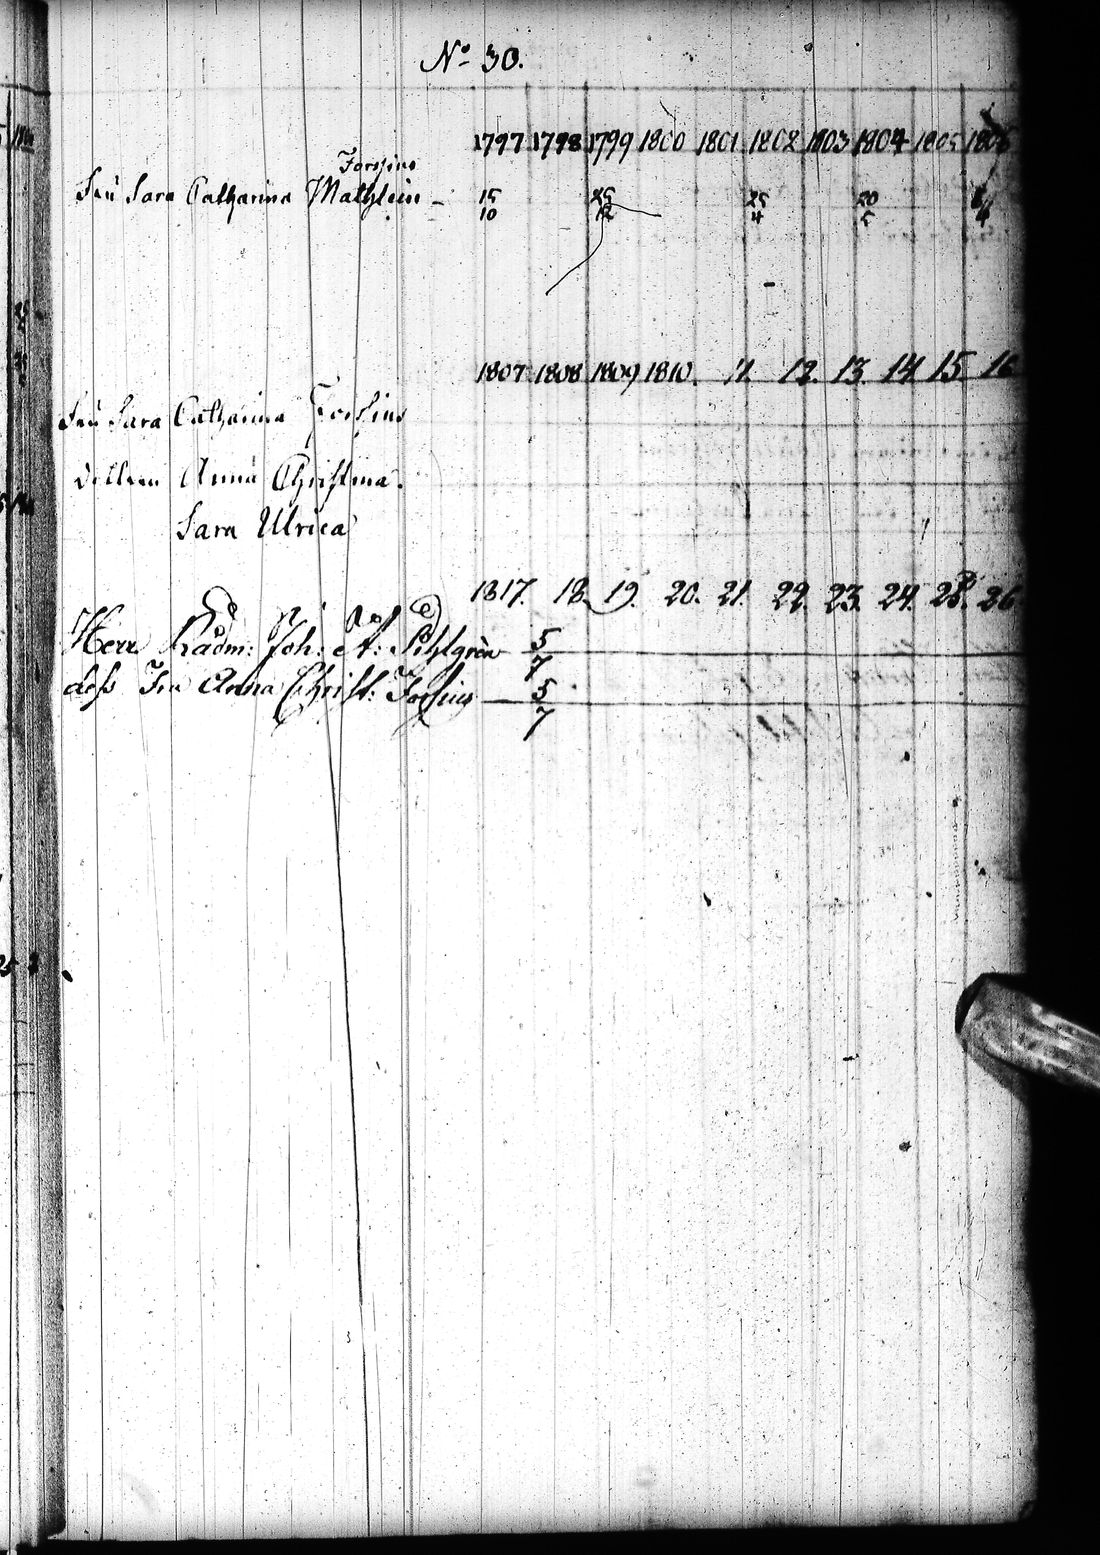 No 30.
1797 1798 1799 1800 1801 1802 1803 1804 1805 1806
Forsius
Fru Sara Catharina Mathlein - 15 25 25 20
10 12 4 5 4
1807 1808 1809 1810. 11. 12. 13. 14 15. 16
Fru Sara Catharina Forssius
Anna Christina.
Sara Ulrica
1817. 18. 19. 20. 21. 22. 23. 24. 25. 26
Herr Rådm: Joh: A: Pihlgrén 5
7
dess Fru Anna Christ: Forsius 5
7